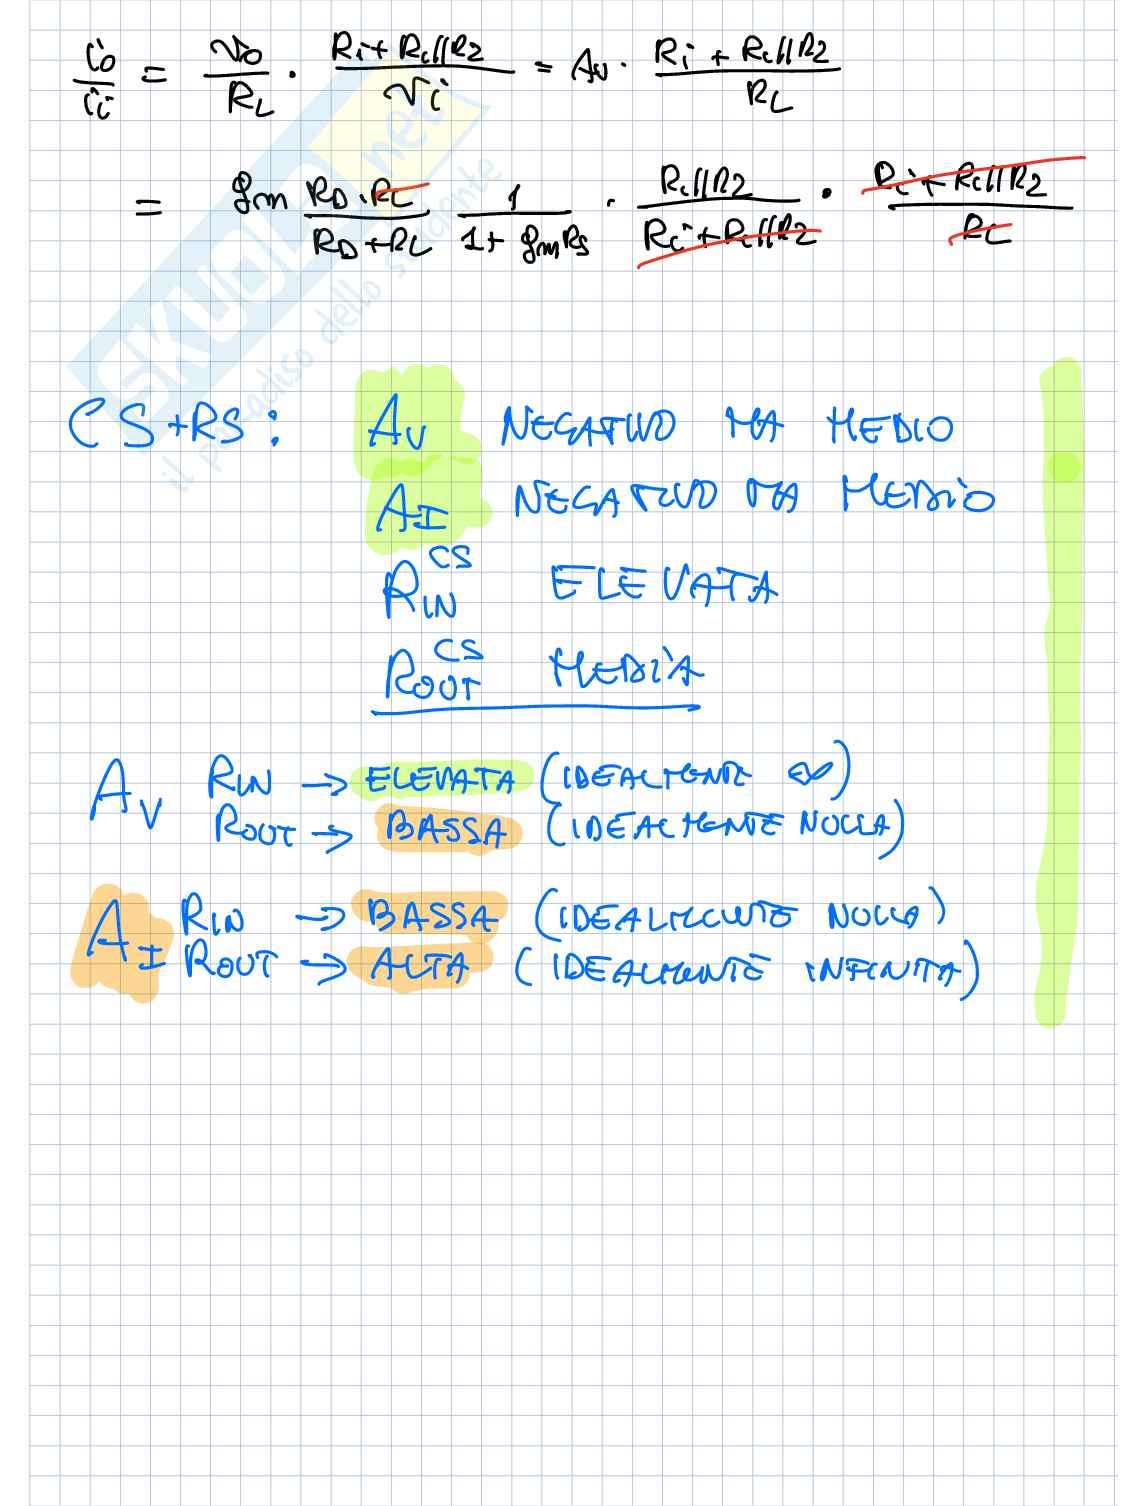 io/ii = vo/RL · (Ri + R1//R2)/vi = Av · (Ri + R1//R2)/RL
= gm (RD · RL)/(RD + RL) 1/(1 + gmRs) · (R1//R2)/(Ri + R1//R2) · (Ri + R1//R2)/RL
SKUOLA.net
il paradiso dello studente
CS+RS: AV NEGATIVO MA MEDIO
AI NEGATIVO MA MEDIO
RIN^CS ELEVATA
ROUT^CS MEDIA
AV RIN → ELEVATA (IDEALMENTE ∞)
ROUT → BASSA (IDEALMENTE NULLA)
AI RIN → BASSA (IDEALMENTE NULLA)
ROUT → ALTA (IDEALMENTE INFINITA)